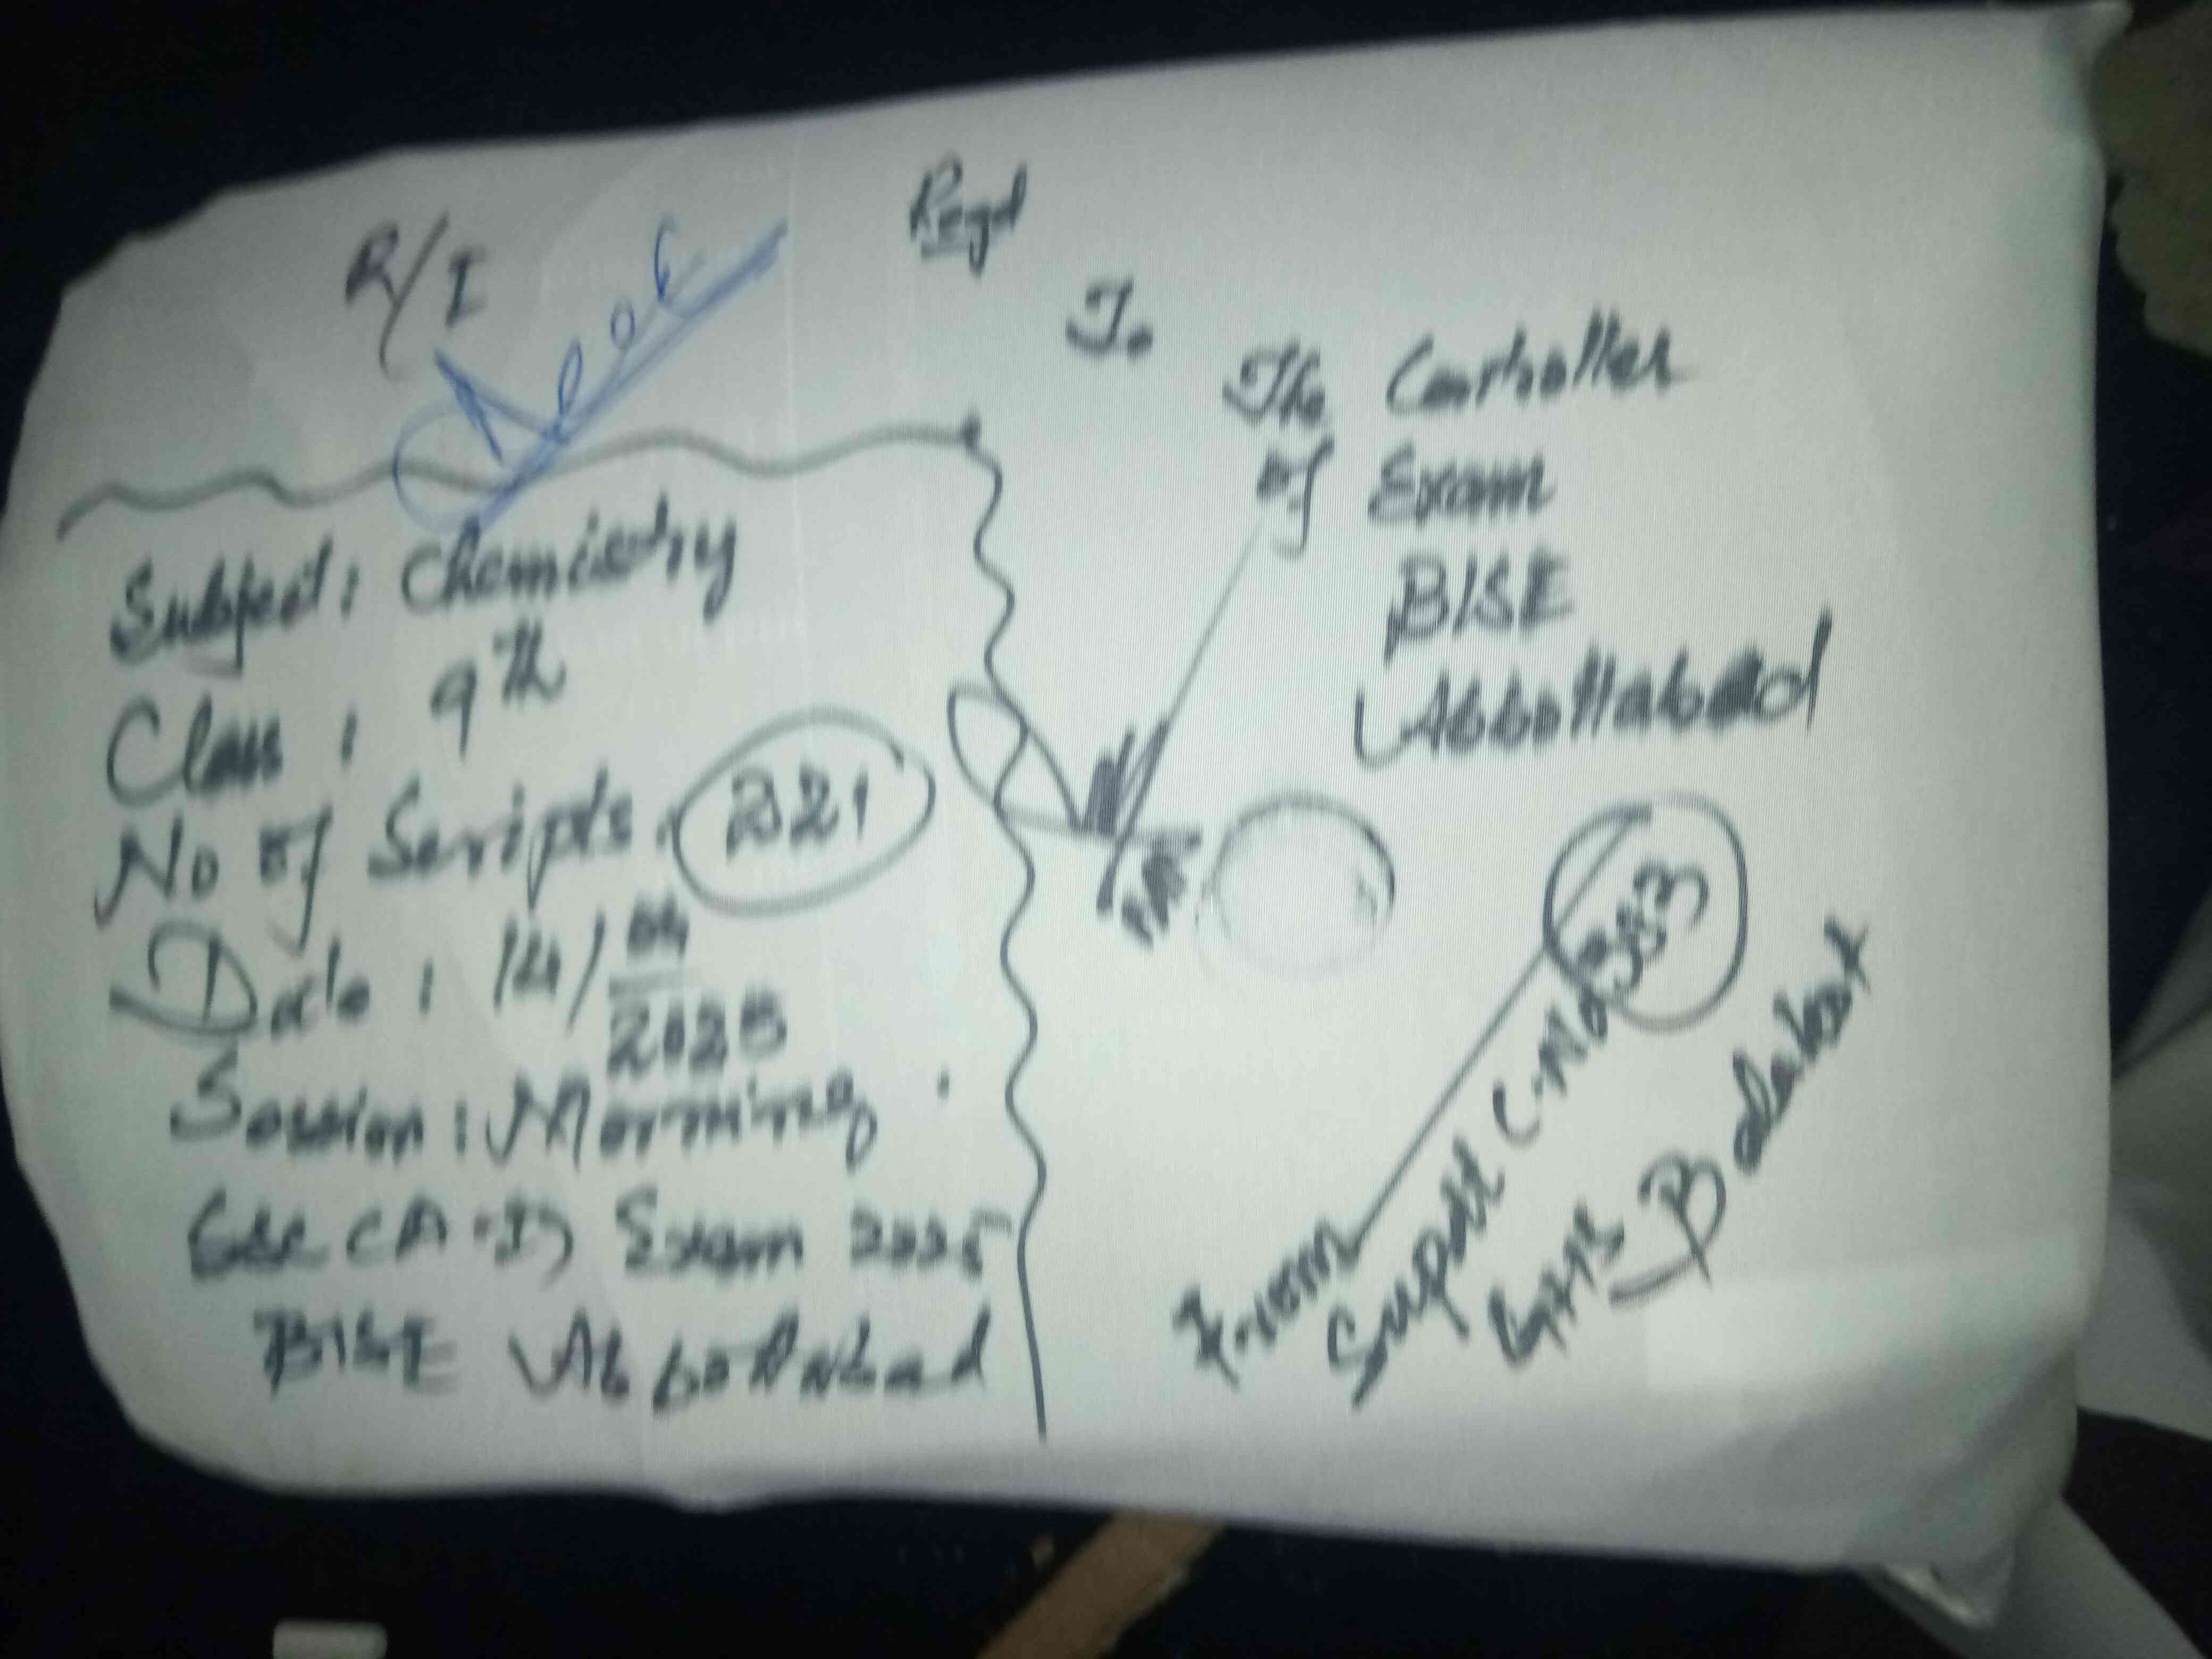 R/I
Regd
To
The Controller
of Exam
BISE
Abbottabad
Subject: Chemistry
Class: 9th
No of Scripts. 321
Date: 14/04/2025
Session: Morning.
SSC (A-I) Exam 2025
BISE Abbottabad
From
Supdt C.No 353
GHS B